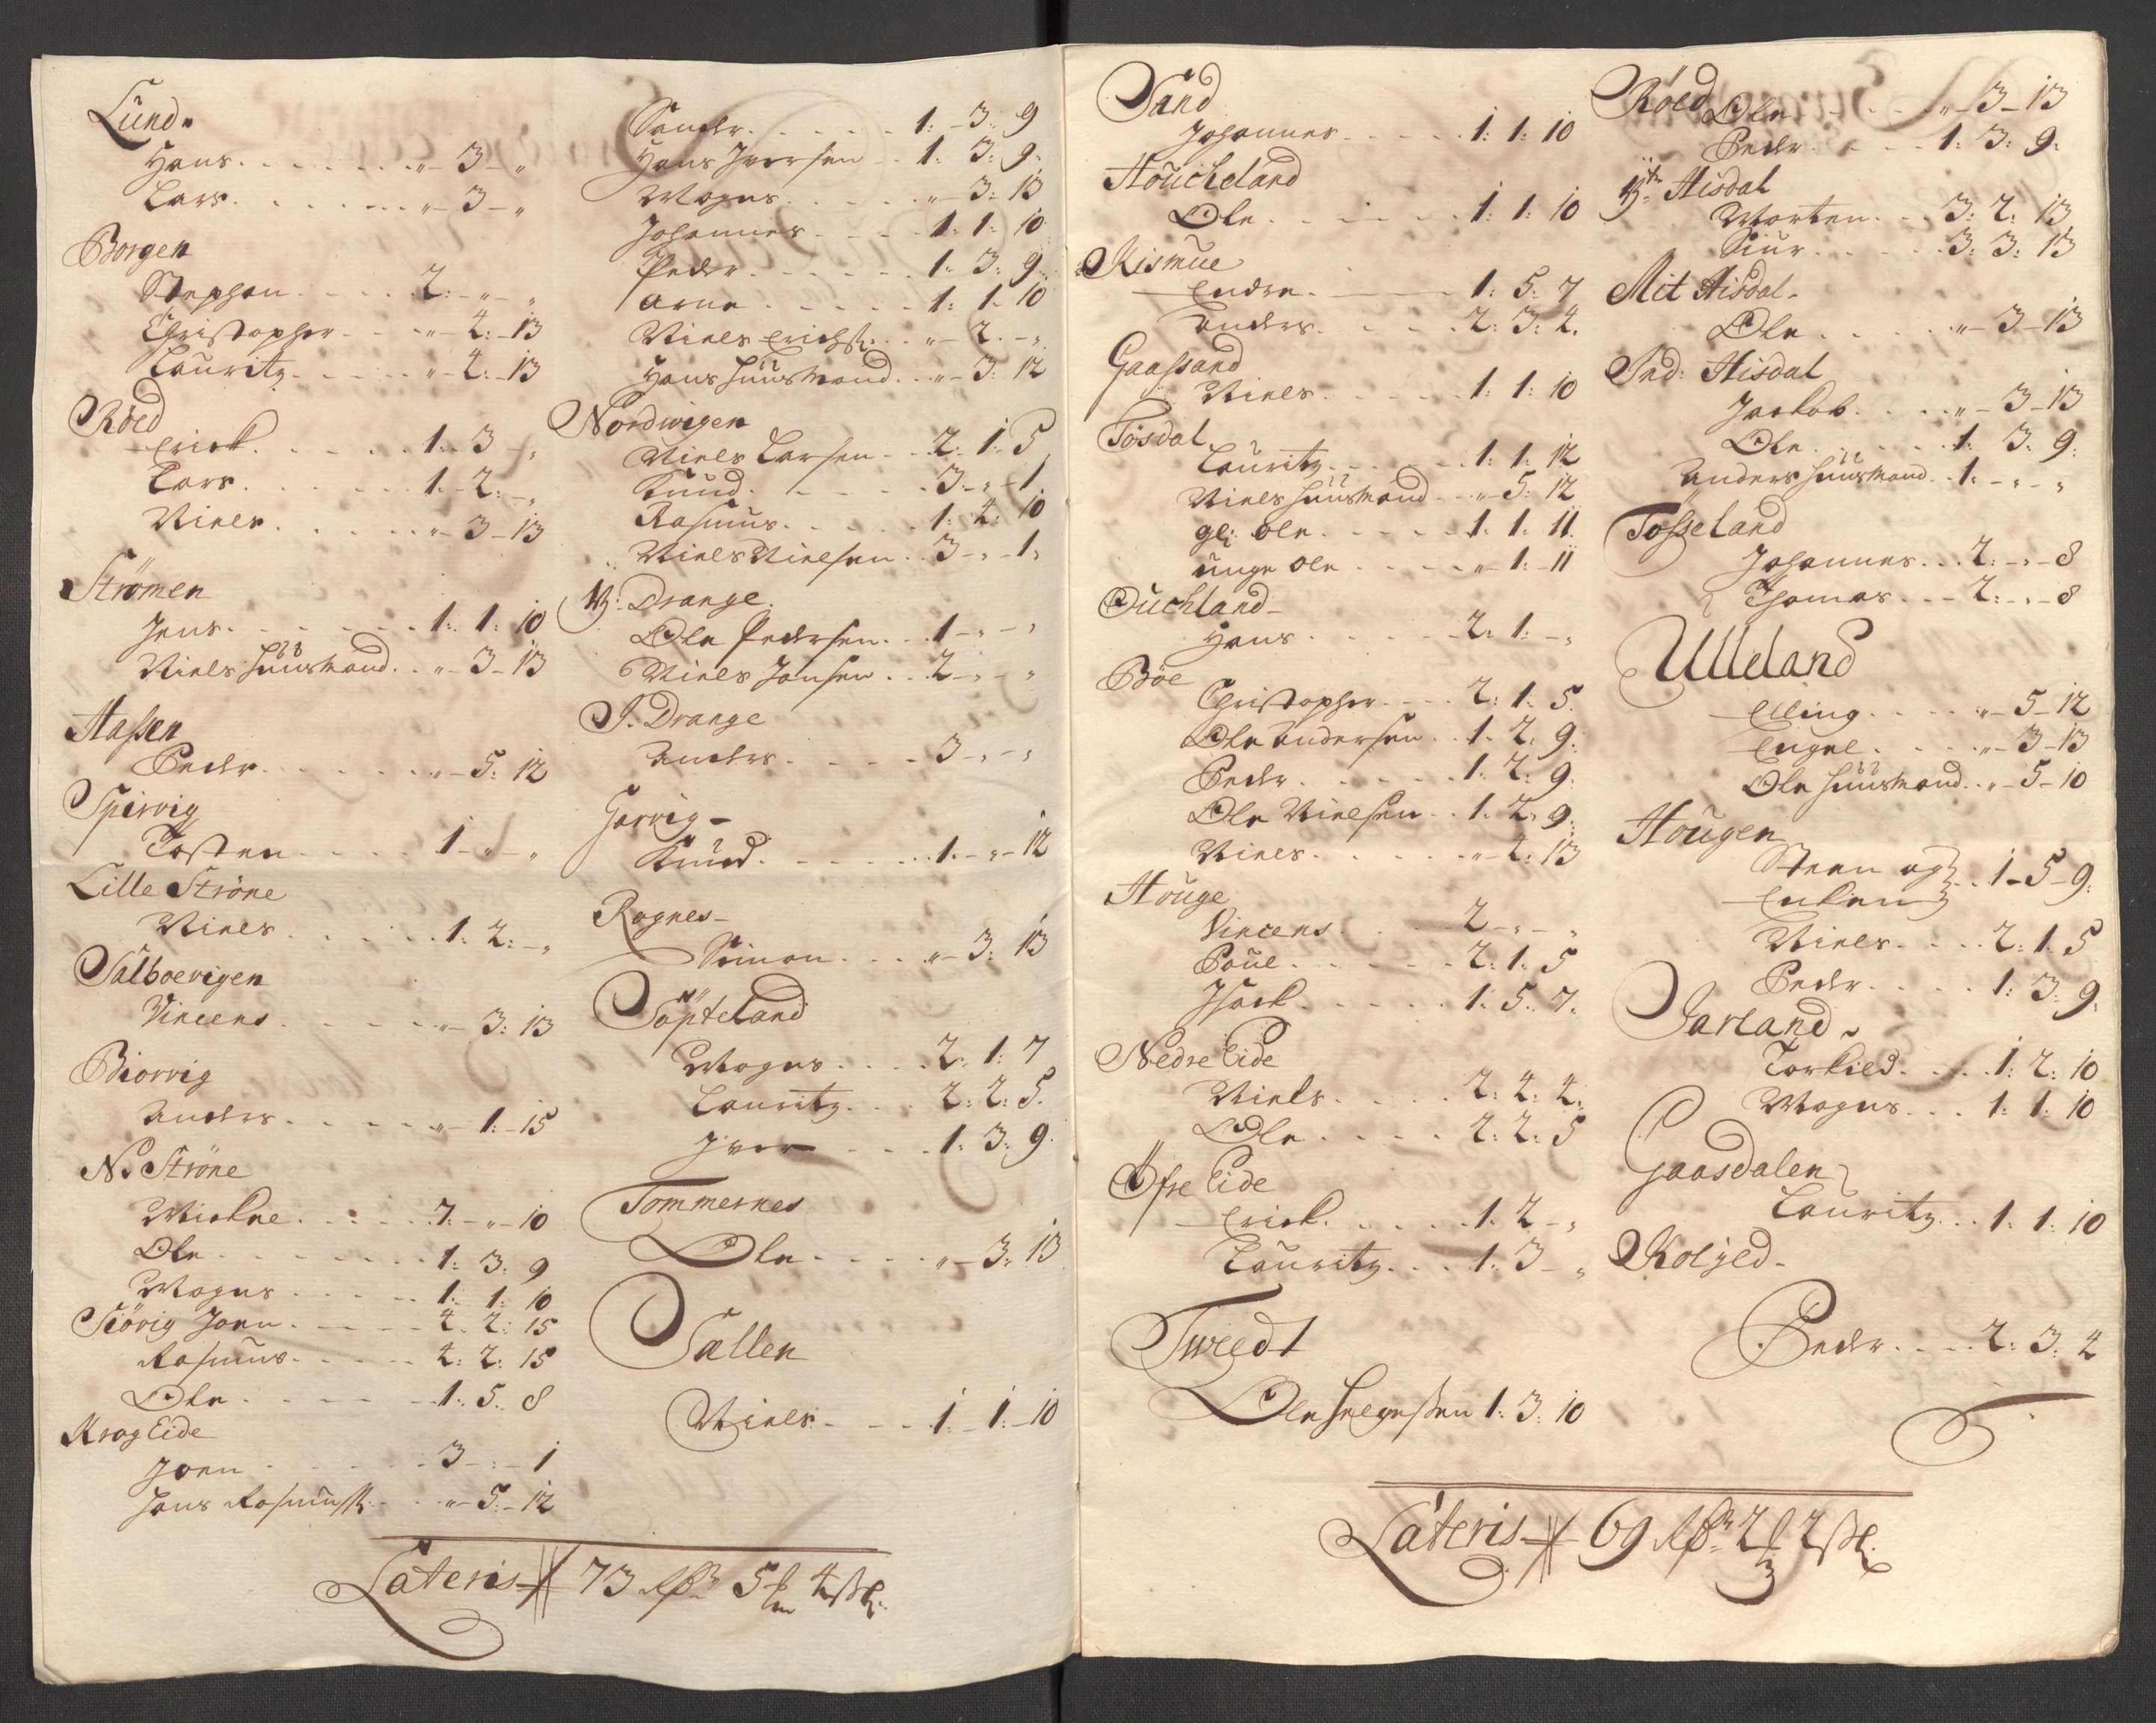 Lund.
Hans . . . . . . „ – 3 – „
Lars . . . . . . „ – 3 – „
Borgen
Stephan . . . . 2: – „ – „
Christopher . . „ – 4: – 13
Lauritz . . . . „ – 4: – 13
Röed
Erick . . . . . 1: 3 – „
Lars . . . . . 1: 2: – „
Niels . . . . . „ – 3 – 13
Strömen
Jens . . . . . 1: 1: 10
Niels Huusmand . . „ – 3 – 13
Hassen
Peder . . . . . „ – 5: 12
Spirvig
Tosten . . . . 1 – „ – „
Lille Ströne
Niels . . . . . 1: 2: – „
Salboevigen
Vincens . . . . „ – 3: 13
Biorvig
Anders . . . . „ – 1: – 15
N. Ströne
Mickel . . . . 7. – „ – 10
Ole . . . . . 1: 3: 9
Mogns . . . . 1: 1: 10
Siövig Joen . . . 4: 2: 15
Rasmus . . . . 4: 2: 15
Ole . . . . . 1: 5: 8
Krog Eide
Joen . . . . . 3 – : – 1
Hans Rasmuss: . . „ – 5: – 12
Sander . . . . . 1: – 3: 9
Hans Iversen . . 1: 3: 9:
Mogns . . . . . „ – 3: 13
Johannes . . . . 1: 1: 10
Peder . . . . . 1: 3: 9:
Arne . . . . . 1: 1: 10
Niels Erichs: . . „ – 2. – „
Hans Huusmand . . „ – 3: 12
Nordwigen
Niels Larsen . . 2: 1: 5
Knud . . . . . 3 – „ – 1
Rasmus . . . . 1: 4: 10
Niels Nielsen . . 3 – „ – 1:
Y: Drange
Ole Pedersen . . 1 – „ – „
Niels Jansen . . 2 – „ – „
I. Drange
Anders . . . . 3 – „ – „
Garvig –
Knud . . . . . 1: – „ – 12
Rognes –
Simon . . . . „ – 3: 13
Söpteland
Mogns . . . . 2: 1: 7
Lauritz . . . 2: 2: 5:
Iver . . . . 1: 3: 9:
Tommernes
Ole . . . . . „ – 3: 13
Sallen
Niels . . . . 1 – 1: – 10
Lateris 73 Rdr 5 4 s:
Sand
Johannes . . . . 1: 1: 10
Houcheland
Ole . . . . . 1: 1: 10
Kismue
Endre . . . . 1: 5: 7
Anders . . . . 2: 3: 4.
Gaassand
Niels . . . . . 1: 1: 10
Tösdal
Lauritz . . . . 1: 1: 12
Niels Huusmand . . „ – 5: 12
gl: Ole . . . . 1: 1: 11.
unge Ole . . . . „ – 1: – 11
Ouchland –
Hans . . . . . 2: 1: – „
Böe
Christopher . . . 2: 1: 5.
Ole Andersen . . 1: 2: 9:
Peder . . . . . 1: 2: 9:
Ole Nielsen . . 1: 2: 9:
Niels . . . . . „ – 4: 13
Houge
Vincens . . . 2 – „ – „
Poul . . . . . 2: 1: 5
Isack . . . . . 1: 5: 7.
Nedre Eide
Niels . . . . 2: 4: 4:
Ole . . . . . 2: 2: 5
Öfre Eide
Erick . . . . 1: 2 – „
Lauritz . . . 1: 3 – „
Twedt
Ole Helgesen 1: 3: 10
Röed Ole . . . . „ – 3 – 13
Peder . . . . 1: 3: 9:
Ytr: Hisdal
Morten . . . 3: 2: 13
Siur . . . . 3: 3: 13
Mit Hisdal.
Ole . . . . . „ – 3 – 13
Ind: Hisdal
Jackob . . . . „ – 3 – 13
Ole . . . . . 1: 3: 9:
Anders Huusmand . . 1: – „ – „
Tösseland
Johannes . . . 2: – „ – 8
Thomas . . . 2: – „ – 8
Ulleland
Elling . . . . „ – 5 – 12
Engel . . . . „ – 3 – 13
Ole Huusmand . . „ – 5 – 10
Hougen
Steen og
Enken . . 1 – 5 – 9:
Niels . . . . 2: 1: 5
Peder . . . . 1: 3: 9:
Jarland.
Torkild . . . . 1: 2: 10
Mogns . . . 1: 1: 10
Gaasdalen
Lauritz . . . 1: 1: 10
Rolyed –
Peder . . . . 2: 3: 4
Lateris 69 Rdr 2 2 s: